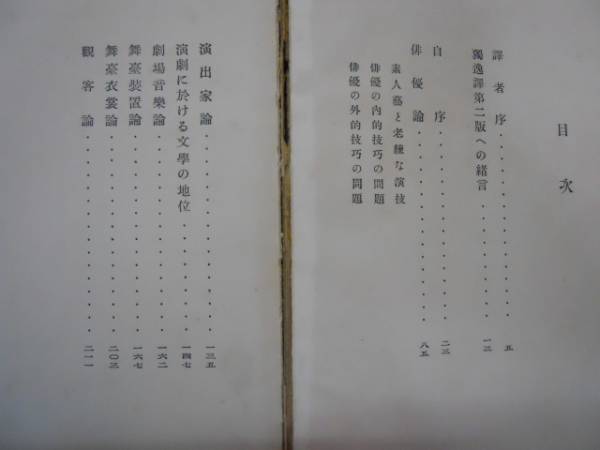 目次
譯者序 五
獨逸譯第二版への緒言 一三
自序 二三
俳優論 八五
素人藝と老練な演技
俳優の內的技巧の問題
俳優の外的技巧の問題
演出家論 一三五
演劇に於ける文學の地位 一四七
劇場音樂論 一六二
舞臺裝置論 一六七
舞臺衣裳論 二〇三
觀客論 二一一